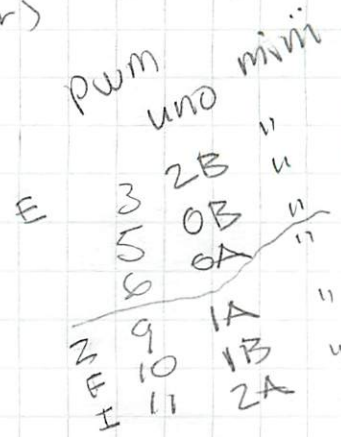 r)
pwm uno mini
3 2B "
E 5 0B "
6 0A "
9 1A "
10 1B "
11 2A "